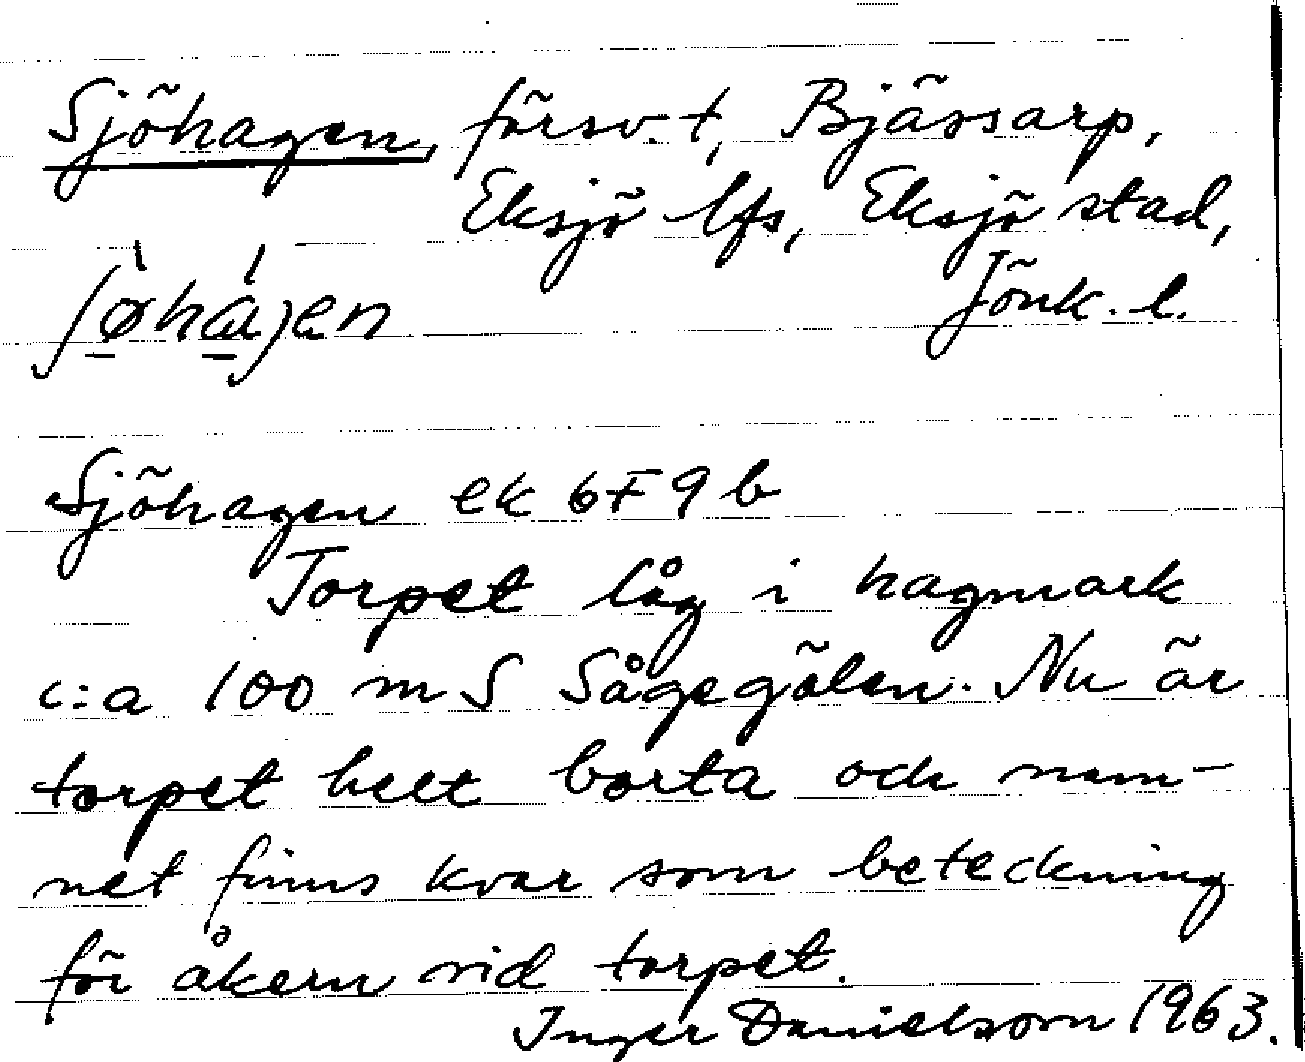 Sjöhagen, försv. t, Bjässarp,
Eksjö lfs, Eksjö stad,
Jönk. l.
Sjöhagen ek 6F 9 b
Torpet låg i hagmark
c:a 100 m S Sågegölen. Nu är
torpet helt borta och nam-
net finns kvar som beteckning
för åkern vid torpet.
Inger Danielsson 1963.